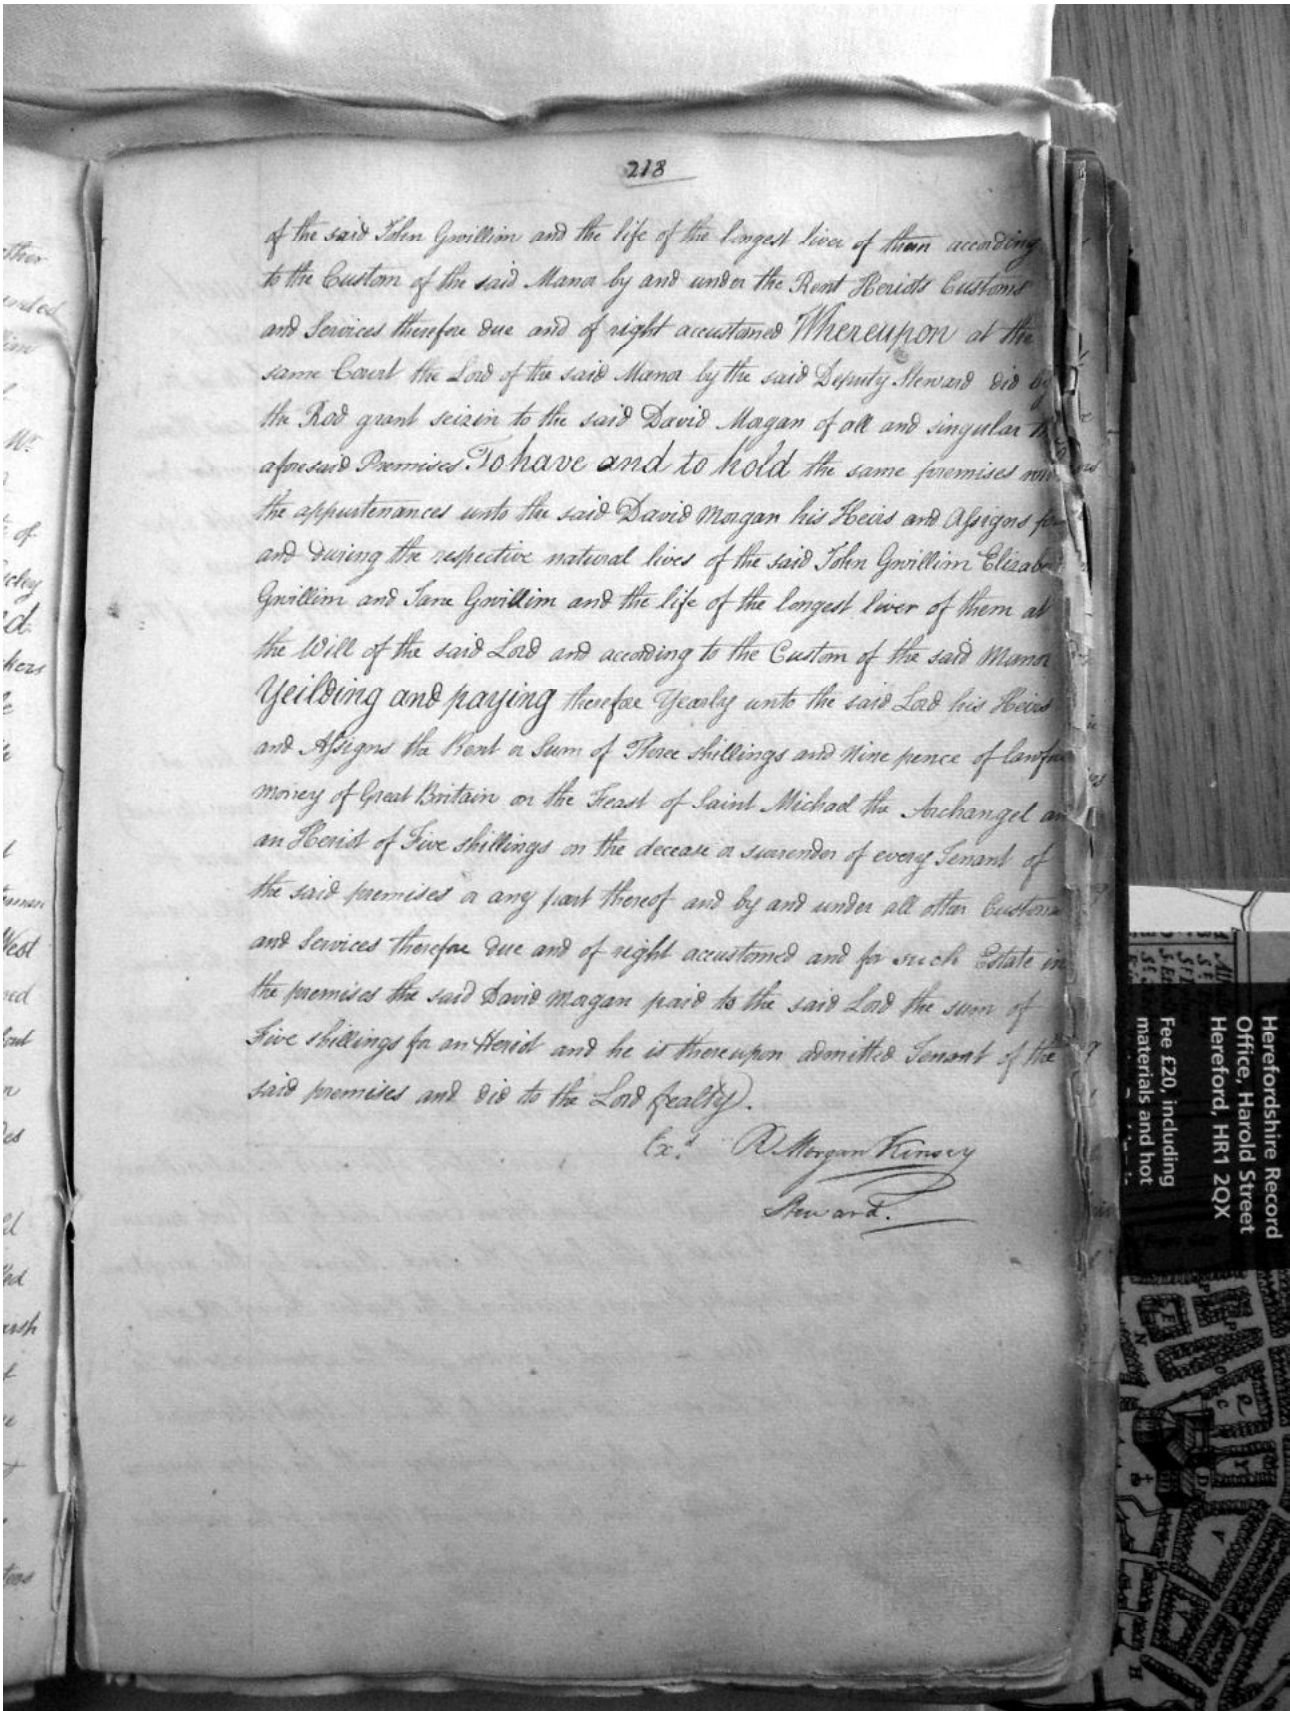 218
of the said John Gwillim and the life of the longest liver of them according
to the Custom of the said Manor by and under the Rent Heriots Customs
and Services therefore due and of right accustomed Whereupon at the
same Court the Lord of the said Manor by the said Deputy Steward did by
the Rod grant seizin to the said David Morgan of all and singular the
aforesaid Premises To have and to hold the same premises with
the appurtenances unto the said David Morgan his Heirs and Assigns for
and during the respective natural lives of the said John Gwillim Elizabeth
Gwillim and Jane Gwillim and the life of the longest liver of them at
the Will of the said Lord and according to the Custom of the said Manor
Yeilding and paying therefore Yearly unto the said Lord his Heirs
and Assigns the Rent or Sum of Three shillings and Nine pence of lawful
money of Great Britain on the Feast of Saint Michael the Archangel an
an Heriot of Five shillings on the decease or surrender of every Tenant of
the said premises or any part thereof and by and under all other Customs
and Services therefore due and of right accustomed and for such Estate in
the premises the said David Morgan paid to the said Lord the sum of
Five shillings for an Heriot and he is thereupon admitted Tenant of the
said premises and did to the Lord fealty.
Ex.d R Morgan Kinsey
Steward.
Herefordshire Record
Office, Harold Street
Hereford, HR1 2QX
Fee £20, including
materials and hot